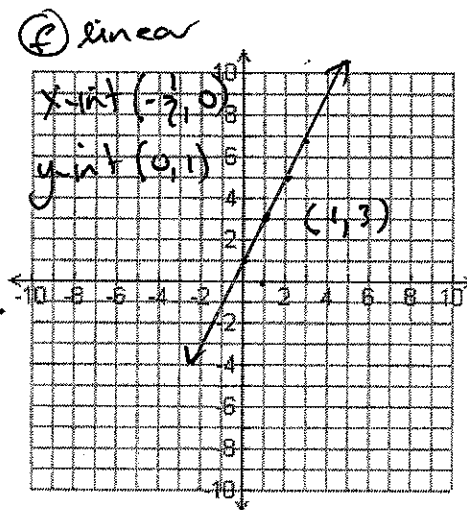 (f) linear
x-int (-1/2, 0)
y-int (0, 1)
(1, 3)
10
8
6
4
2
-10 -8 -6 -4 -2 2 4 6 8 10
-2
-4
-6
-8
-10